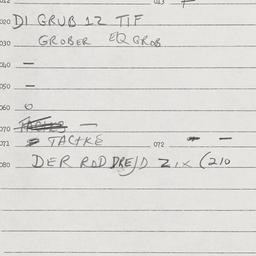 013
020 DI GRUB 12 TIF
030 GROBER EQ GROB
040 —
050 —
060 o
070 —
071 TACHKE 072 — —
080 DER ROD DRE/D ZIX (210